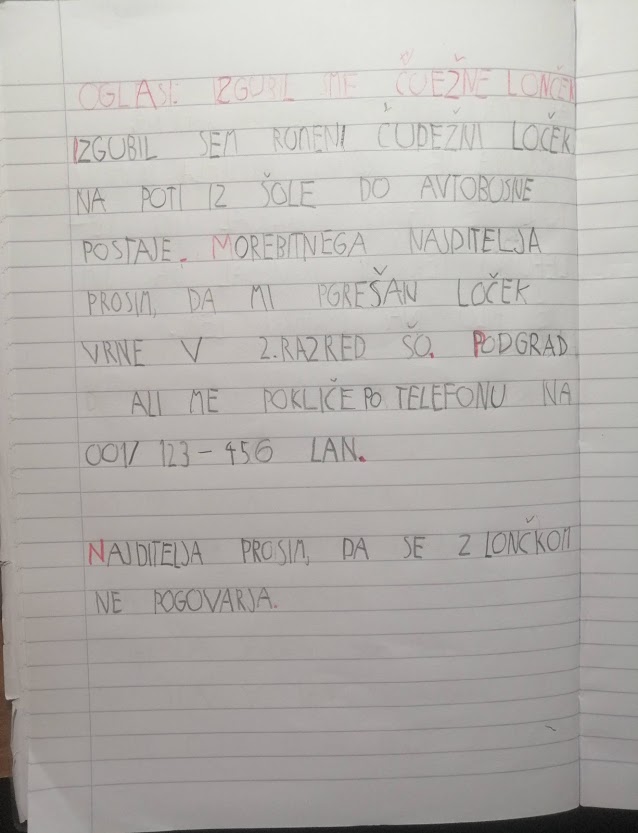 OGLAS: IZGUBIL SME ČUEŽNE LONČEK
IZGUBIL SEM RUMENI ČUDEŽNI LOČEK
NA POTI IZ ŠOLE DO AVTOBUSNE
POSTAJE. MOREBITNEGA NAJDITELJA
PROSIM, DA MI PGREŠAN LOČEK
VRNE V 2.RAZRED ŠO. PODGRAD
ALI ME POKLIČE PO TELEFONU NA
001/ 123-456 LAN.
NAJDITELJA PROSIM, DA SE Z LONČKOM
NE POGOVARJA.